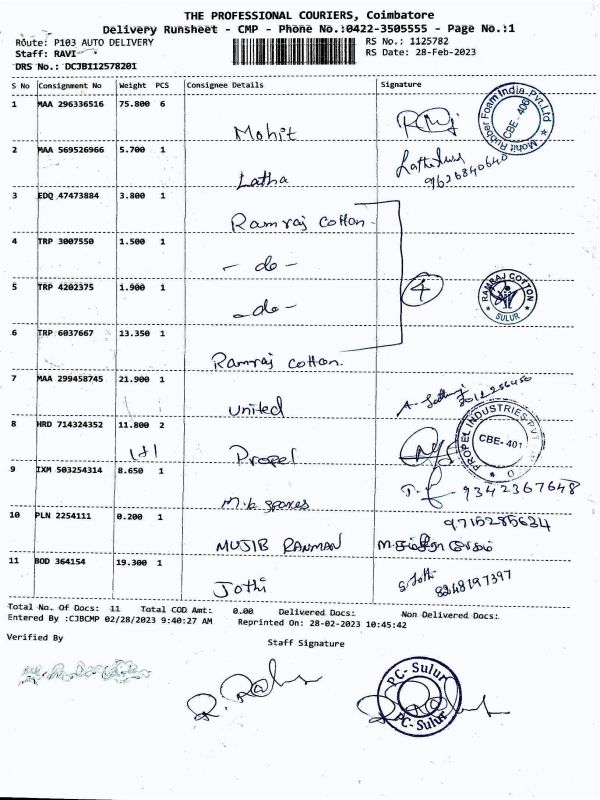 THE PROFESSIONAL COURIERS, Coimbatore
Delivery Runsheet - CMP - Phone No.:0422-3505555 - Page No.:1
Route: P103 AUTO DELIVERY RS No.: 1125782
Staff: RAVI RS Date: 28-Feb-2023
DRS No.: DCJB112578201
S No Consignment No Weight PCS Consignee Details Signature
1 MAA 296336516 75.800 6
Mohit
Mohit Rubber Foam India Pvt.Ltd CBE - 406
2 MAA 569526966 5.700 1
Latha
9626840640
3 EDQ 47473884 3.800 1
Ramraj Cotton
4 TRP 3007550 1.500 1
- do -
5 TRP 4202375 1.900 1
- do -
4
RAMRAJ COTTON SULUR
6 TRP 6037667 13.350 1
Ramraj cotton.
7 MAA 299458745 21.900 1
United
8 HRD 714324352 11.800 2
1+1
Propel
PROPEL INDUSTRIES PVT CBE- 401
9 IXM 503254314 8.650 1
M.k spares
9342367648
10 PLN 2254111 0.200 1
9715285634
MUJIB RANMAN
11 BOD 364154 19.300 1
Jothi
S. Jothi
8248197397
Total No. Of Docs: 11 Total COD Amt: 0.00 Delivered Docs: Non Delivered Docs:
Entered By :CJBCMP 02/28/2023 9:40:27 AM Reprinted On: 28-02-2023 10:45:42
Verified By Staff Signature
PC-Sulur
PC-Sulur